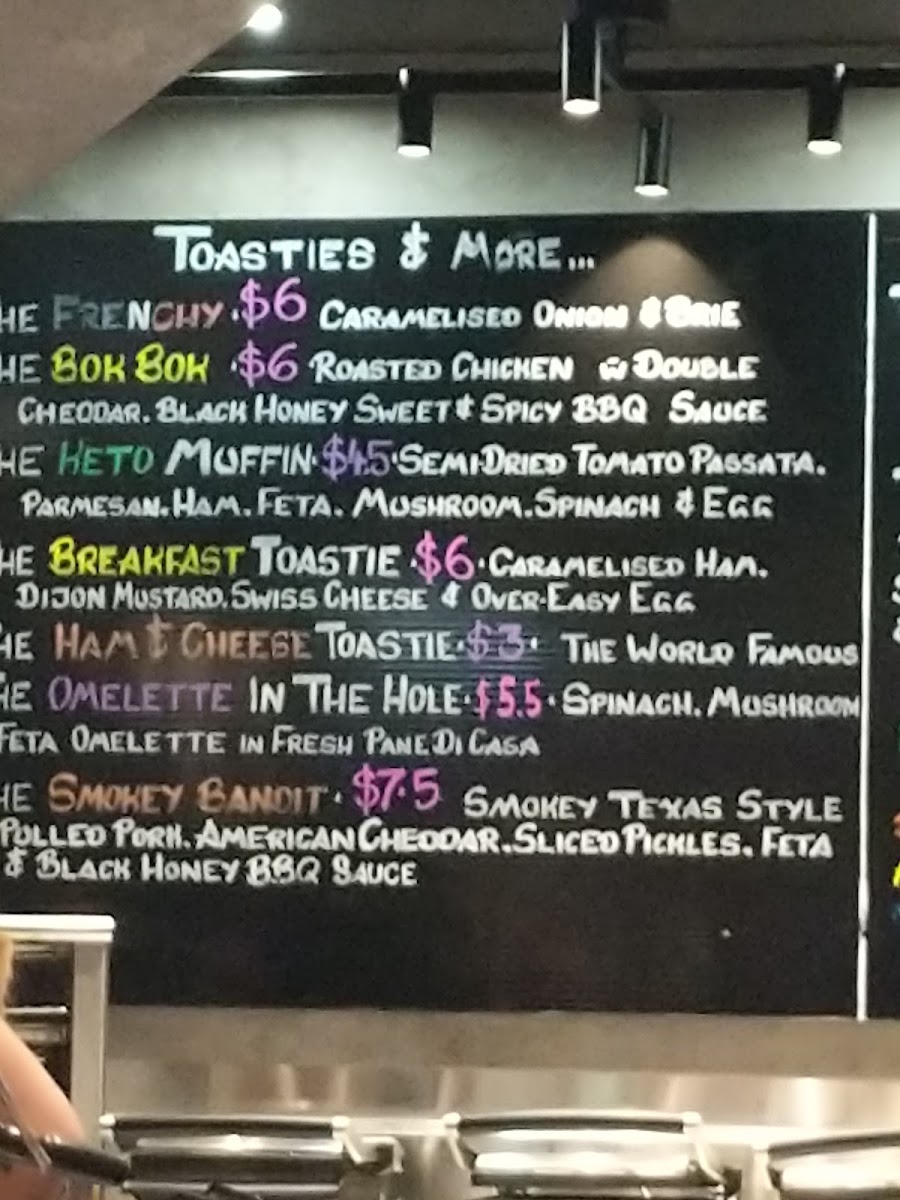 TOASTIES & MORE...
HE FRENCHY · $6 CARAMELISED ONION & BRIE
HE BOK BOK · $6 ROASTED CHICKEN W DOUBLE
CHEDDAR. BLACK HONEY SWEET & SPICY BBQ SAUCE
HE KETO MUFFIN · $4.5 · SEMI-DRIED TOMATO PASSATA.
PARMESAN. HAM. FETA. MUSHROOM. SPINACH & EGG
HE BREAKFAST TOASTIE · $6 · CARAMELISED HAM.
DIJON MUSTARD. SWISS CHEESE & OVER-EASY EGG
HE HAM & CHEESE TOASTIE · $3 · THE WORLD FAMOUS
HE OMELETTE IN THE HOLE · $5.5 · SPINACH. MUSHROOM
FETA OMELETTE IN FRESH PANE DI CASA
HE SMOKEY BANDIT · $7.5 SMOKEY TEXAS STYLE
PULLED PORK. AMERICAN CHEDDAR. SLICED PICKLES. FETA
& BLACK HONEY BBQ SAUCE